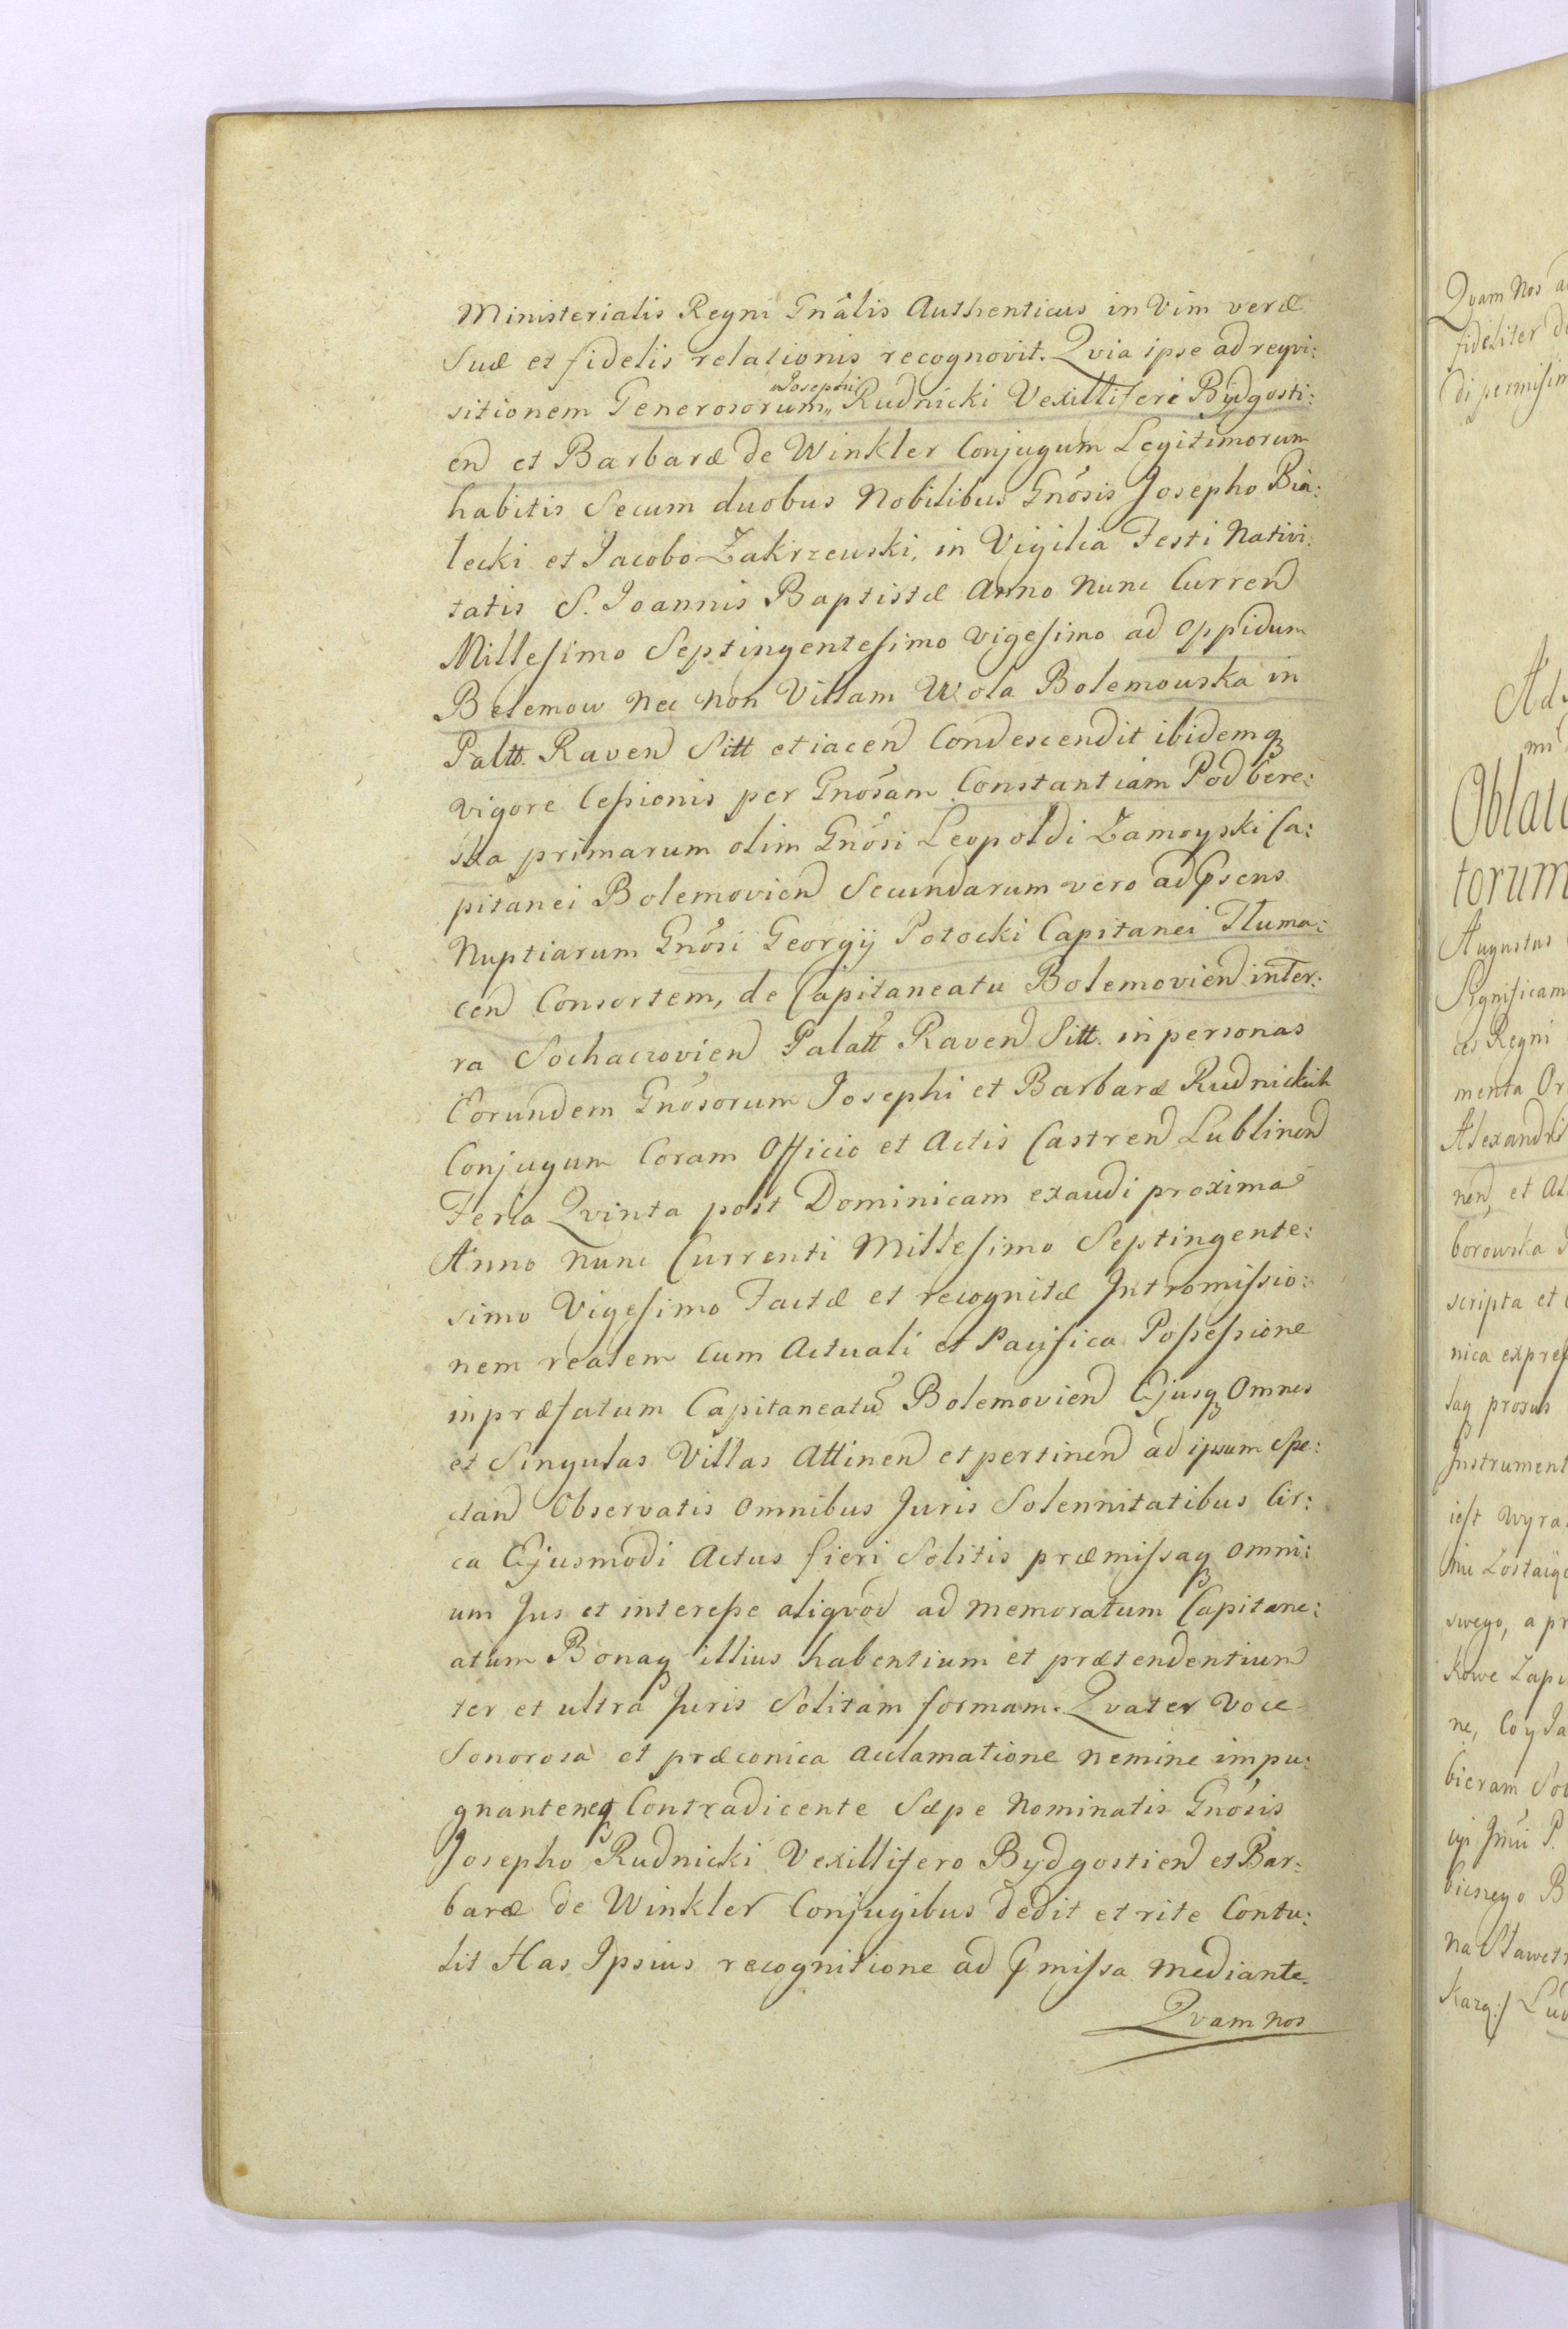 Ministerialis Regni Gnâlis Authenticus in Vim veræ
Suæ et fidelis relationis recognovit. Qvia ipse ad reqvi:
sitionem Generosorum Josephi Rudnicki Vexilliferi Bydgosti:
en et Barbaræ de Winkler Conjugum Legitimorum
habitis Secum duobus Nobilibus Gnôsis Josepho Bia:
lecki et Jacobo Zakrzewski, in Vigilia Festi Nativi:
tatis S. Joannis Baptistæ Anno Nunc Curren
Millesimo Septingentesimo vigesimo ad oppidum
Bolemow nec non Villam Wola Bolemowska in
Paltt. Raven Sitt et iacen Condescendit ibidemq
vigore Cessionis per Gnôsam Constantiam Podbere:
ska primarum olim Gnôsi Leopoldi Zamoyski Ca:
pitanei Bolemovien Secundarum vero ad psens
Nuptiarum Gnôsi Georgij Potocki Capitanei Tłuma:
cen Consortem, de Capitaneatu Bolemovien in ter:
ra Sochaczovien Palatt Raven Sitt. in personas
Eorundem Gnôsorum Josephi et Barbaræ Rudnickich
Conjugum Coram Officio et Actis Castren Lublinen
Feria Qvinta post Dominicam exaudi proxima
Anno nunc Currenti Millesimo Septingente:
simo Vigesimo Factæ et recognitæ Intromissio:
nem realem Cum Actuali et Pacifica Possessione
in præfatum Capitaneatu Bolemovien Ejusq Omnes
et Singulas Villas Attinen et pertinen ad ipsum Spe:
ctan Observatis omnibus Juris Solennitatibus Cir:
ca Ejusmodi Actus fieri Solitis præmissaq omni:
um Jus et interesse aliqvod ad memoratum Capitane:
atum Bonaq illius habentium et prætendentium
ter et ultra Juris Solitam formam. Qvater Voce
Sonorosa et præconica acclamatione nemine impu:
gnante neq Contradicente Sæpe Nominatis Gnôsis
Josepho Rudnicki Vexillifero Bydgostien et Bar:
baræ de Winkler Conjugibus dedit et rite Contu:
lit Has Ipsius recognitione ad pmissa mediante.
Qvam nos
Qvam Nos
fideliter
di permisim
Oblata
torum
Augustus
Significam
ces Regni
menta
Alexandri
nen, et
borowska
scripta et
nica expres
laq prosus
Instrument
iest wyra
swego, a
kowe
ne,
bieram
na